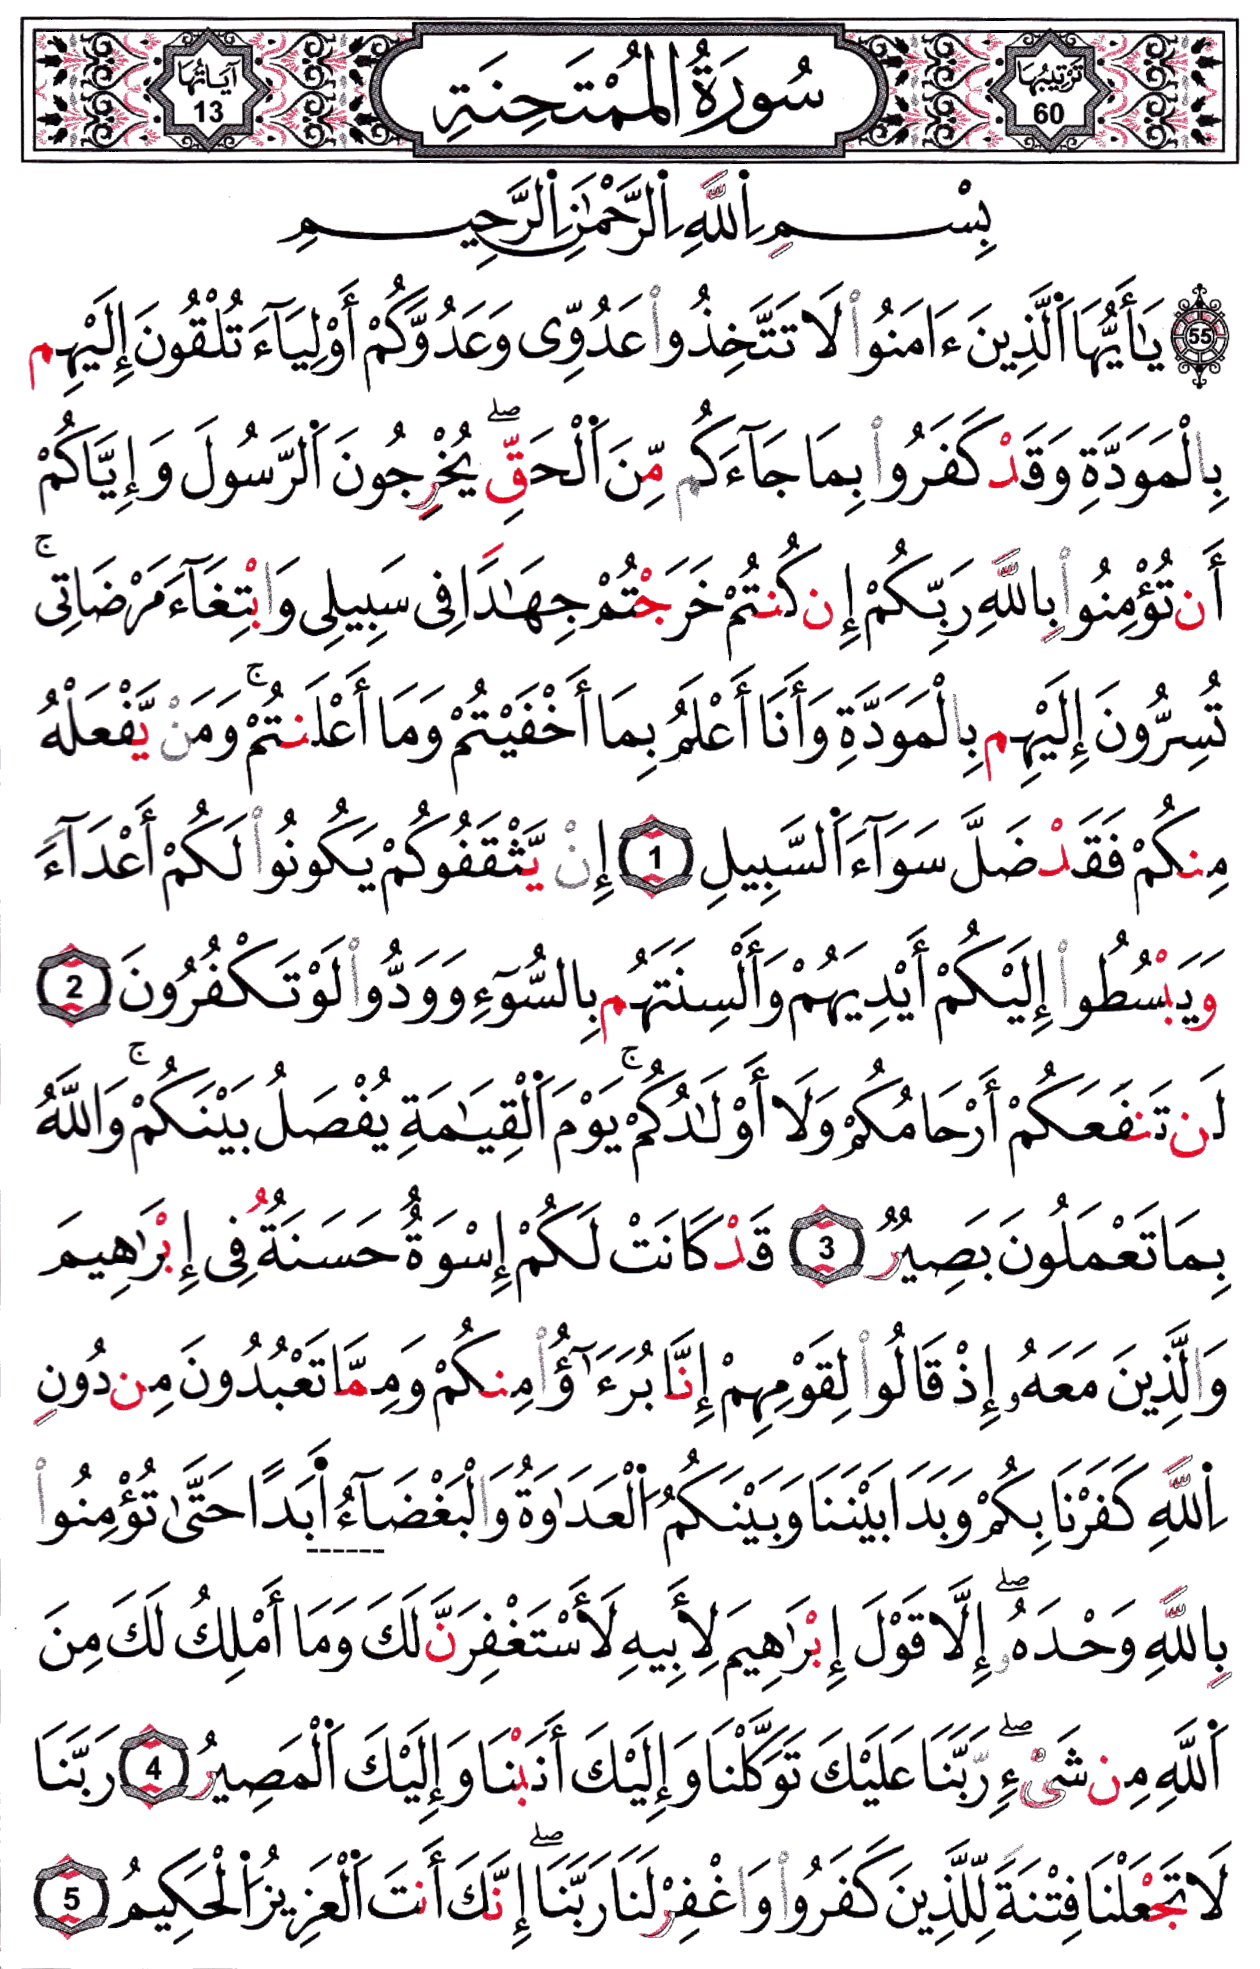 تَرْتِيبُهَا 60 سُورَةُ الْمُمْتَحِنَةِ آيَاتُهَا 13
بِسْمِ اِ۬للَّهِ اِ۬لرَّحْمَٰنِ اِ۬لرَّحِيمِ
55 يَٰأَيُّهَا اَ۬لَّذِينَ ءَامَنُواْ لَا تَتَّخِذُواْ عَدُوِّى وَعَدُوَّكُمْ أَوْلِيَآءَ تُلْقُونَ إِلَيْهِم
بِالْمَوَدَّةِ وَقَدْ كَفَرُواْ بِمَا جَآءَكُم مِّنَ اَ۬لْحَقِّۖ يُخْرِجُونَ اَ۬لرَّسُولَ وَإِيَّاكُمْ
أَن تُؤْمِنُواْ بِاللَّهِ رَبِّكُمْ إِن كُنتُمْ خَرَجْتُمْ جِهَٰدًا فِى سَبِيلِى وَابْتِغَآءَ مَرْضَاتِىۚ
تُسِرُّونَ إِلَيْهِم بِالْمَوَدَّةِ وَأَنَا أَعْلَمُ بِمَا أَخْفَيْتُمْ وَمَا أَعْلَنتُمْۚ وَمَنْ يَّفْعَلْهُ
مِنكُمْ فَقَدْ ضَلَّ سَوَآءَ اَ۬لسَّبِيلِ 1 إِنْ يَّثْقَفُوكُمْ يَكُونُواْ لَكُمْ أَعْدَآءً
وَيَبْسُطُواْ إِلَيْكُمْ أَيْدِيَهُمْ وَأَلْسِنَتَهُم بِالسُّوٓءِ وَوَدُّواْ لَوْ تَكْفُرُونَ 2
لَن تَنفَعَكُمْ أَرْحَامُكُمْ وَلَا أَوْلَٰدُكُمْۚ يَوْمَ اَ۬لْقِيَٰمَةِ يُفْصَلُ بَيْنَكُمْۚ وَاللَّهُ
بِمَا تَعْمَلُونَ بَصِيرٌ 3 قَدْ كَانَتْ لَكُمْ إِسْوَةٌ حَسَنَةٌ فِى إِبْرَٰهِيمَ
وَالَّذِينَ مَعَهُۥ إِذْ قَالُواْ لِقَوْمِهِمْ إِنَّا بُرَءَٰٓؤُاْ مِنكُمْ وَمِمَّا تَعْبُدُونَ مِن دُونِ
اِ۬للَّهِ كَفَرْنَا بِكُمْ وَبَدَا بَيْنَنَا وَبَيْنَكُمُ اُ۬لْعَدَٰوَةُ وَالْبَغْضَآءُ اَ۬بَدًا حَتَّىٰ تُؤْمِنُواْ
بِاللَّهِ وَحْدَهُۥۖ إِلَّا قَوْلَ إِبْرَٰهِيمَ لِأَبِيهِ لَأَسْتَغْفِرَنَّ لَكَ وَمَا أَمْلِكُ لَكَ مِنَ
اَ۬للَّهِ مِن شَىْءٍۖ رَّبَّنَا عَلَيْكَ تَوَكَّلْنَا وَإِلَيْكَ أَنَبْنَا وَإِلَيْكَ اَ۬لْمَصِيرُ 4 رَبَّنَا
لَا تَجْعَلْنَا فِتْنَةً لِّلَّذِينَ كَفَرُواْ وَاغْفِرْ لَنَا رَبَّنَاۖ إِنَّكَ أَنتَ اَ۬لْعَزِيزُ اُ۬لْحَكِيمُ 5